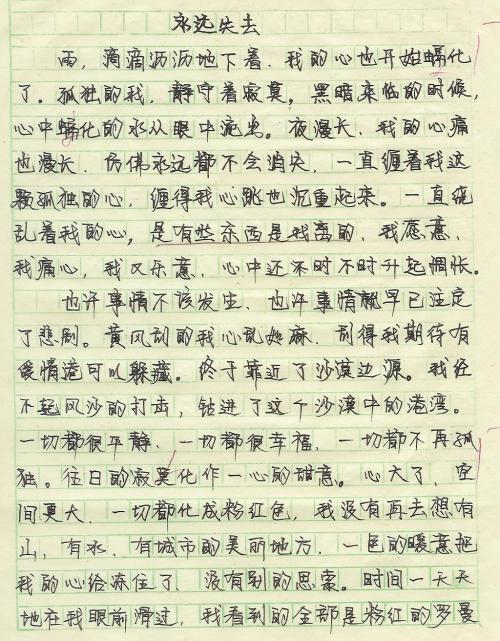 永远失去
雨，滴滴沥沥地下着，我的心也开始蝺化
了。孤独的我，静守着寂寞，黑暗来临的时候，
心中蝺化的水从眼中流出。夜漫长，我的心痛
也漫长，仿佛永远都不会消失，一直缠着我这
颗孤独的心，缠得我心跳也沉重起来。一直绕
乱着我的心，是有些东西是我离的，我愿意，
我痛心，我又乐意，心中还不时不时升起惆怅。
也许事情不该发生，也许事情就早已注定
了悲剧。黄风刮的我心乱如麻，刮得我期待有
爱情港可以躲藏。终于靠近了沙漠边源。我经
不起风沙的打击，钻进了这个沙漠中的港湾。
一切都很平静，一切都很幸福，一切都不再孤
独。往日的寂寞化作一心的甜意。心大了，空
间更大，一切都化成粉红色，我没有再去想有
山，有水，有城市的美丽地方，一色的暖意把
我的心给冻住了，没有别的思索。时间一天天
地在我眼前滑过，我看到的全部是粉红的罗曼